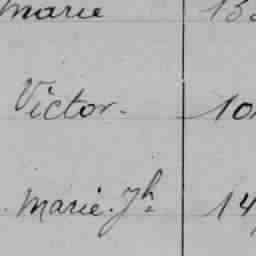 Marie 13
Victor. 10
Marie. Jh. 14